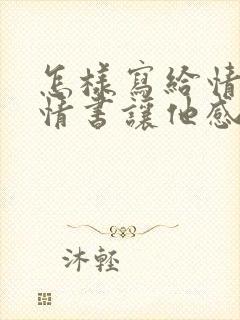 怎樣寫給情
情書讓他感
沐輕